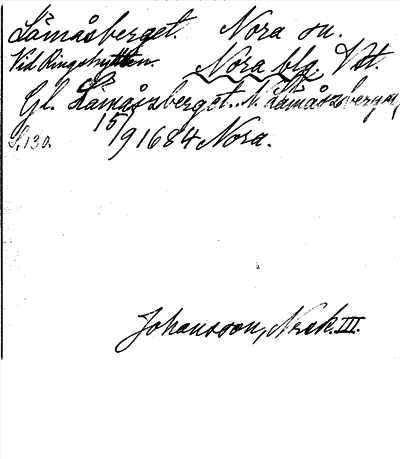 Lämåsberget. Nora sn.
Vid Ringshyttan. Nora blg. Vst.
Gl. Lämåszberget. N. Lämåszberget,
S. 130. 15/9 1684 Nora.
Johansson, Nrsk. III.